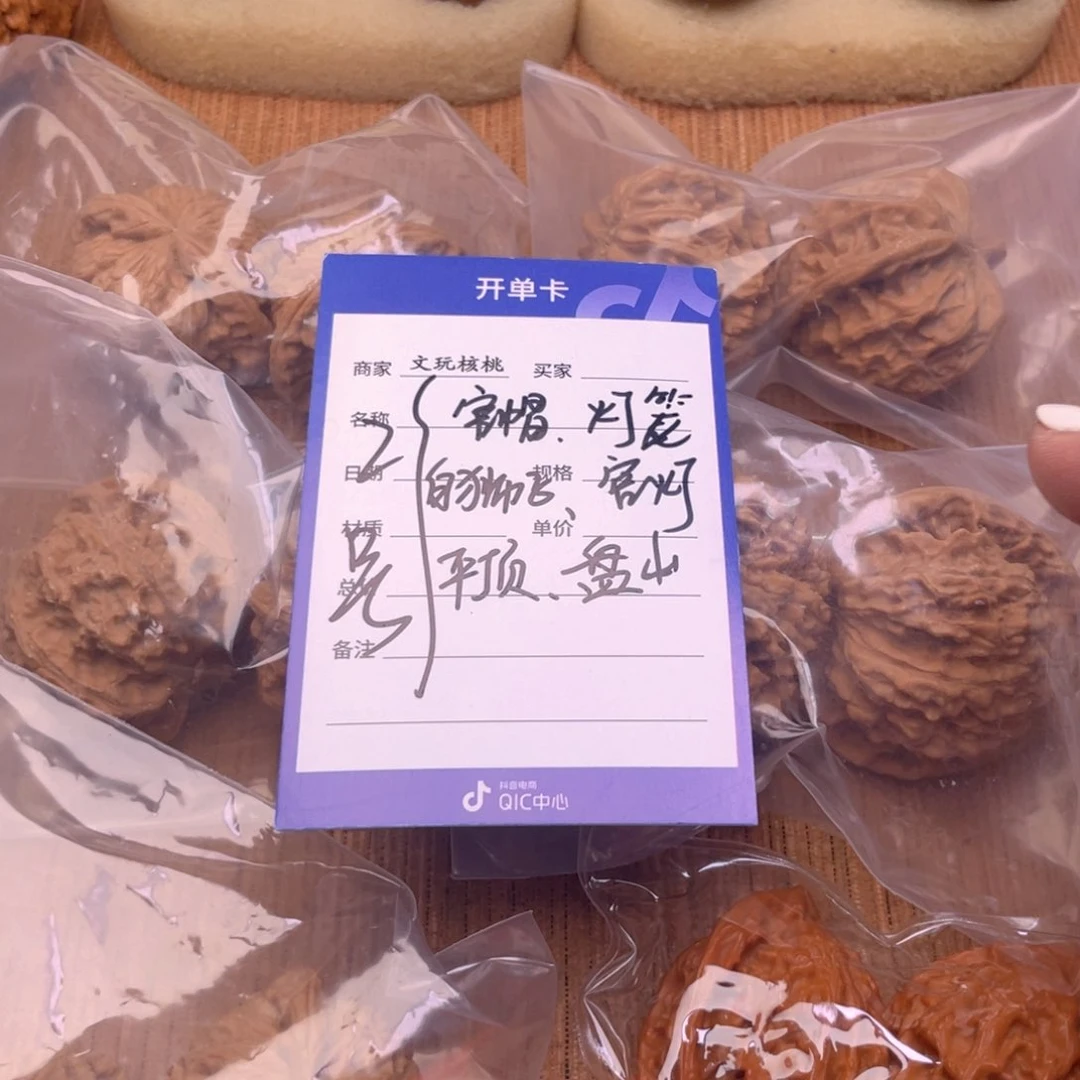 开单卡
商家 文玩核桃 买家
名称 官帽、灯笼
日期 白狮子、规格 官灯
材质 单价
平顶、盘山
总
备注
抖音电商
QIC中心